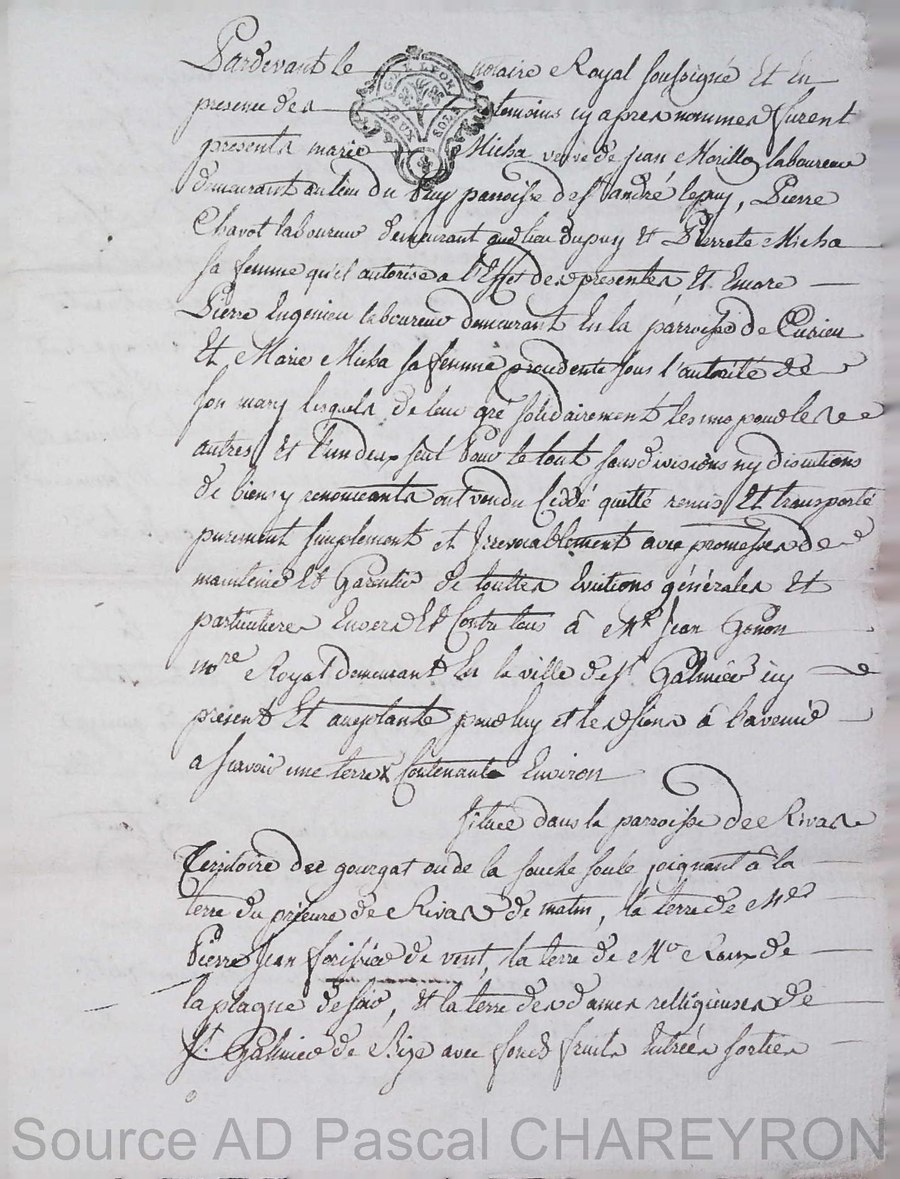 Pardevant le notaire Royal soussigné Et En
presence des temoins cy apres nommés furent
presents marie Micha veuve de jean Morillo laboureur
demeurant au lieu du Puy parroisse de st andré lepuy, Pierre
Chavot laboureur demeurant aud lieu dupuy et Pierrete Micha
sa femme qu'il autorise a l'Effet des presentes Et Encore
Pierre Engenieu laboureur demeurant En la parroisse de Cusieu
Et Marie Micha sa femme procedente sous l'autorité de
son mary lesquels de leur gré solidairement les uns pour les
autres et l'un deux seul Pour le tout sans divisions ny discutions
de biens y renoncants ont vendu Ceddé quitté remis Et transporté
purement simplement et Irrevocablement avec promesses de
maintenir Et Garentir de touttes Evictions générales Et
particulieres Envers Et Contre tous à Me Jean Gonon
nore Royal demeurant En la ville de st Galmier icy
présent Et acceptante pour luy et les siens à l'avenir
a scavoir une terre Contenante Environ
située dans la parroisse de Rivas
Territoire des gourgat ou de la souche soule joignant à la
terre du prieuré de Rivas de matin, la terre de
Pierre Jean forissier de vent, la terre de Mr Roux de
la plagne de soir, et la terre des dames relligieuses de
st Galmier de Bize avec fonds fruits Entrées sorties
GEN LYON
DEUX SOLS
Source AD Pascal CHAREYRON